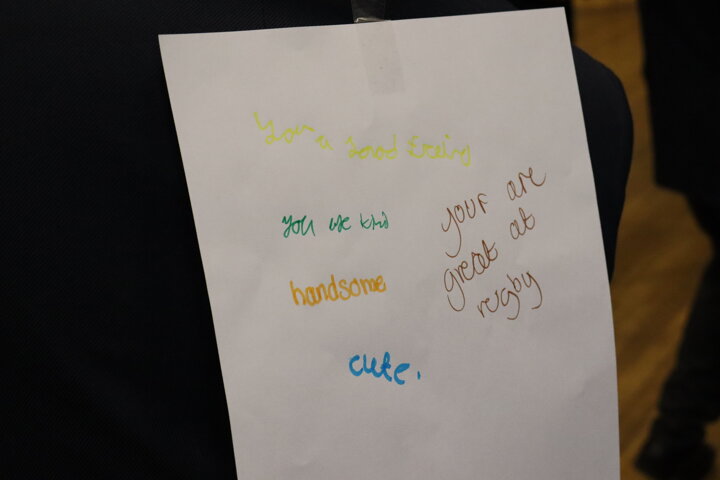 You a good
you are kind
handsome
your are
great at
rugby
cute.